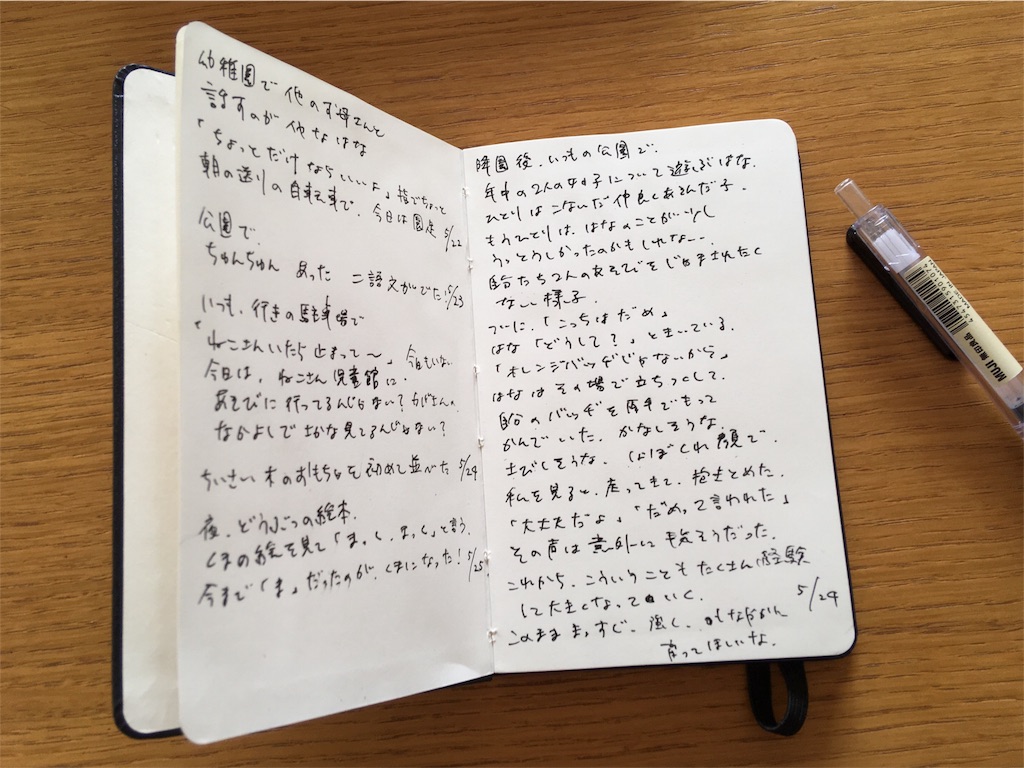 幼稚園で他のお母さんと
話すのが他なはな
「ちょっとだけならいいよ」指でちょっと
朝の送りの自転車で、今日は園庭 5/22
公園で
ちゅんちゅん あった 二語文がでた! 5/23
いつも、行きの駐車場で
「ねこさんいたら止まって〜」今日もいない
今日は、ねこさん児童館に
あそびに行ってるんじゃない?
なかよしで
見てるんじゃない?
ちいさい木のおもちゃを初めて並べた 5/24
夜、どうぶつの絵本
くまの絵を見て「まっく、まっく」と言う。
今まで「ま」だったのが、くまになった! 5/25
降園後、いつもの公園で、
年中の2人の女の子について遊ぶはな。
ひとりはこないだ仲良くあそんだ子。
もうひとりは、はなのことが少し
うっとうしかったのかもしれない。
自分たち2人のあそびをじゃまされたく
ない様子。
ついに、「こっちはだめ」
はな「どうして?」ときいている。
「オレンジバッヂじゃないから」
はなはその場で立ちつくして、
自分のバッヂを片手でもって
かんでいた。かなしそうな、
さびしそうな、しょぼくれ顔で。
私を見ると、走ってきて、抱きとめた。
「大丈夫だよ」「だめって言われた」
その声は意外にも元気そうだった。
これから、こういうこともたくさん経験
して大きくなっていく。 5/24
このまままっすぐ、強く、しなやかに
育ってほしいな。
MUJI 無印良品